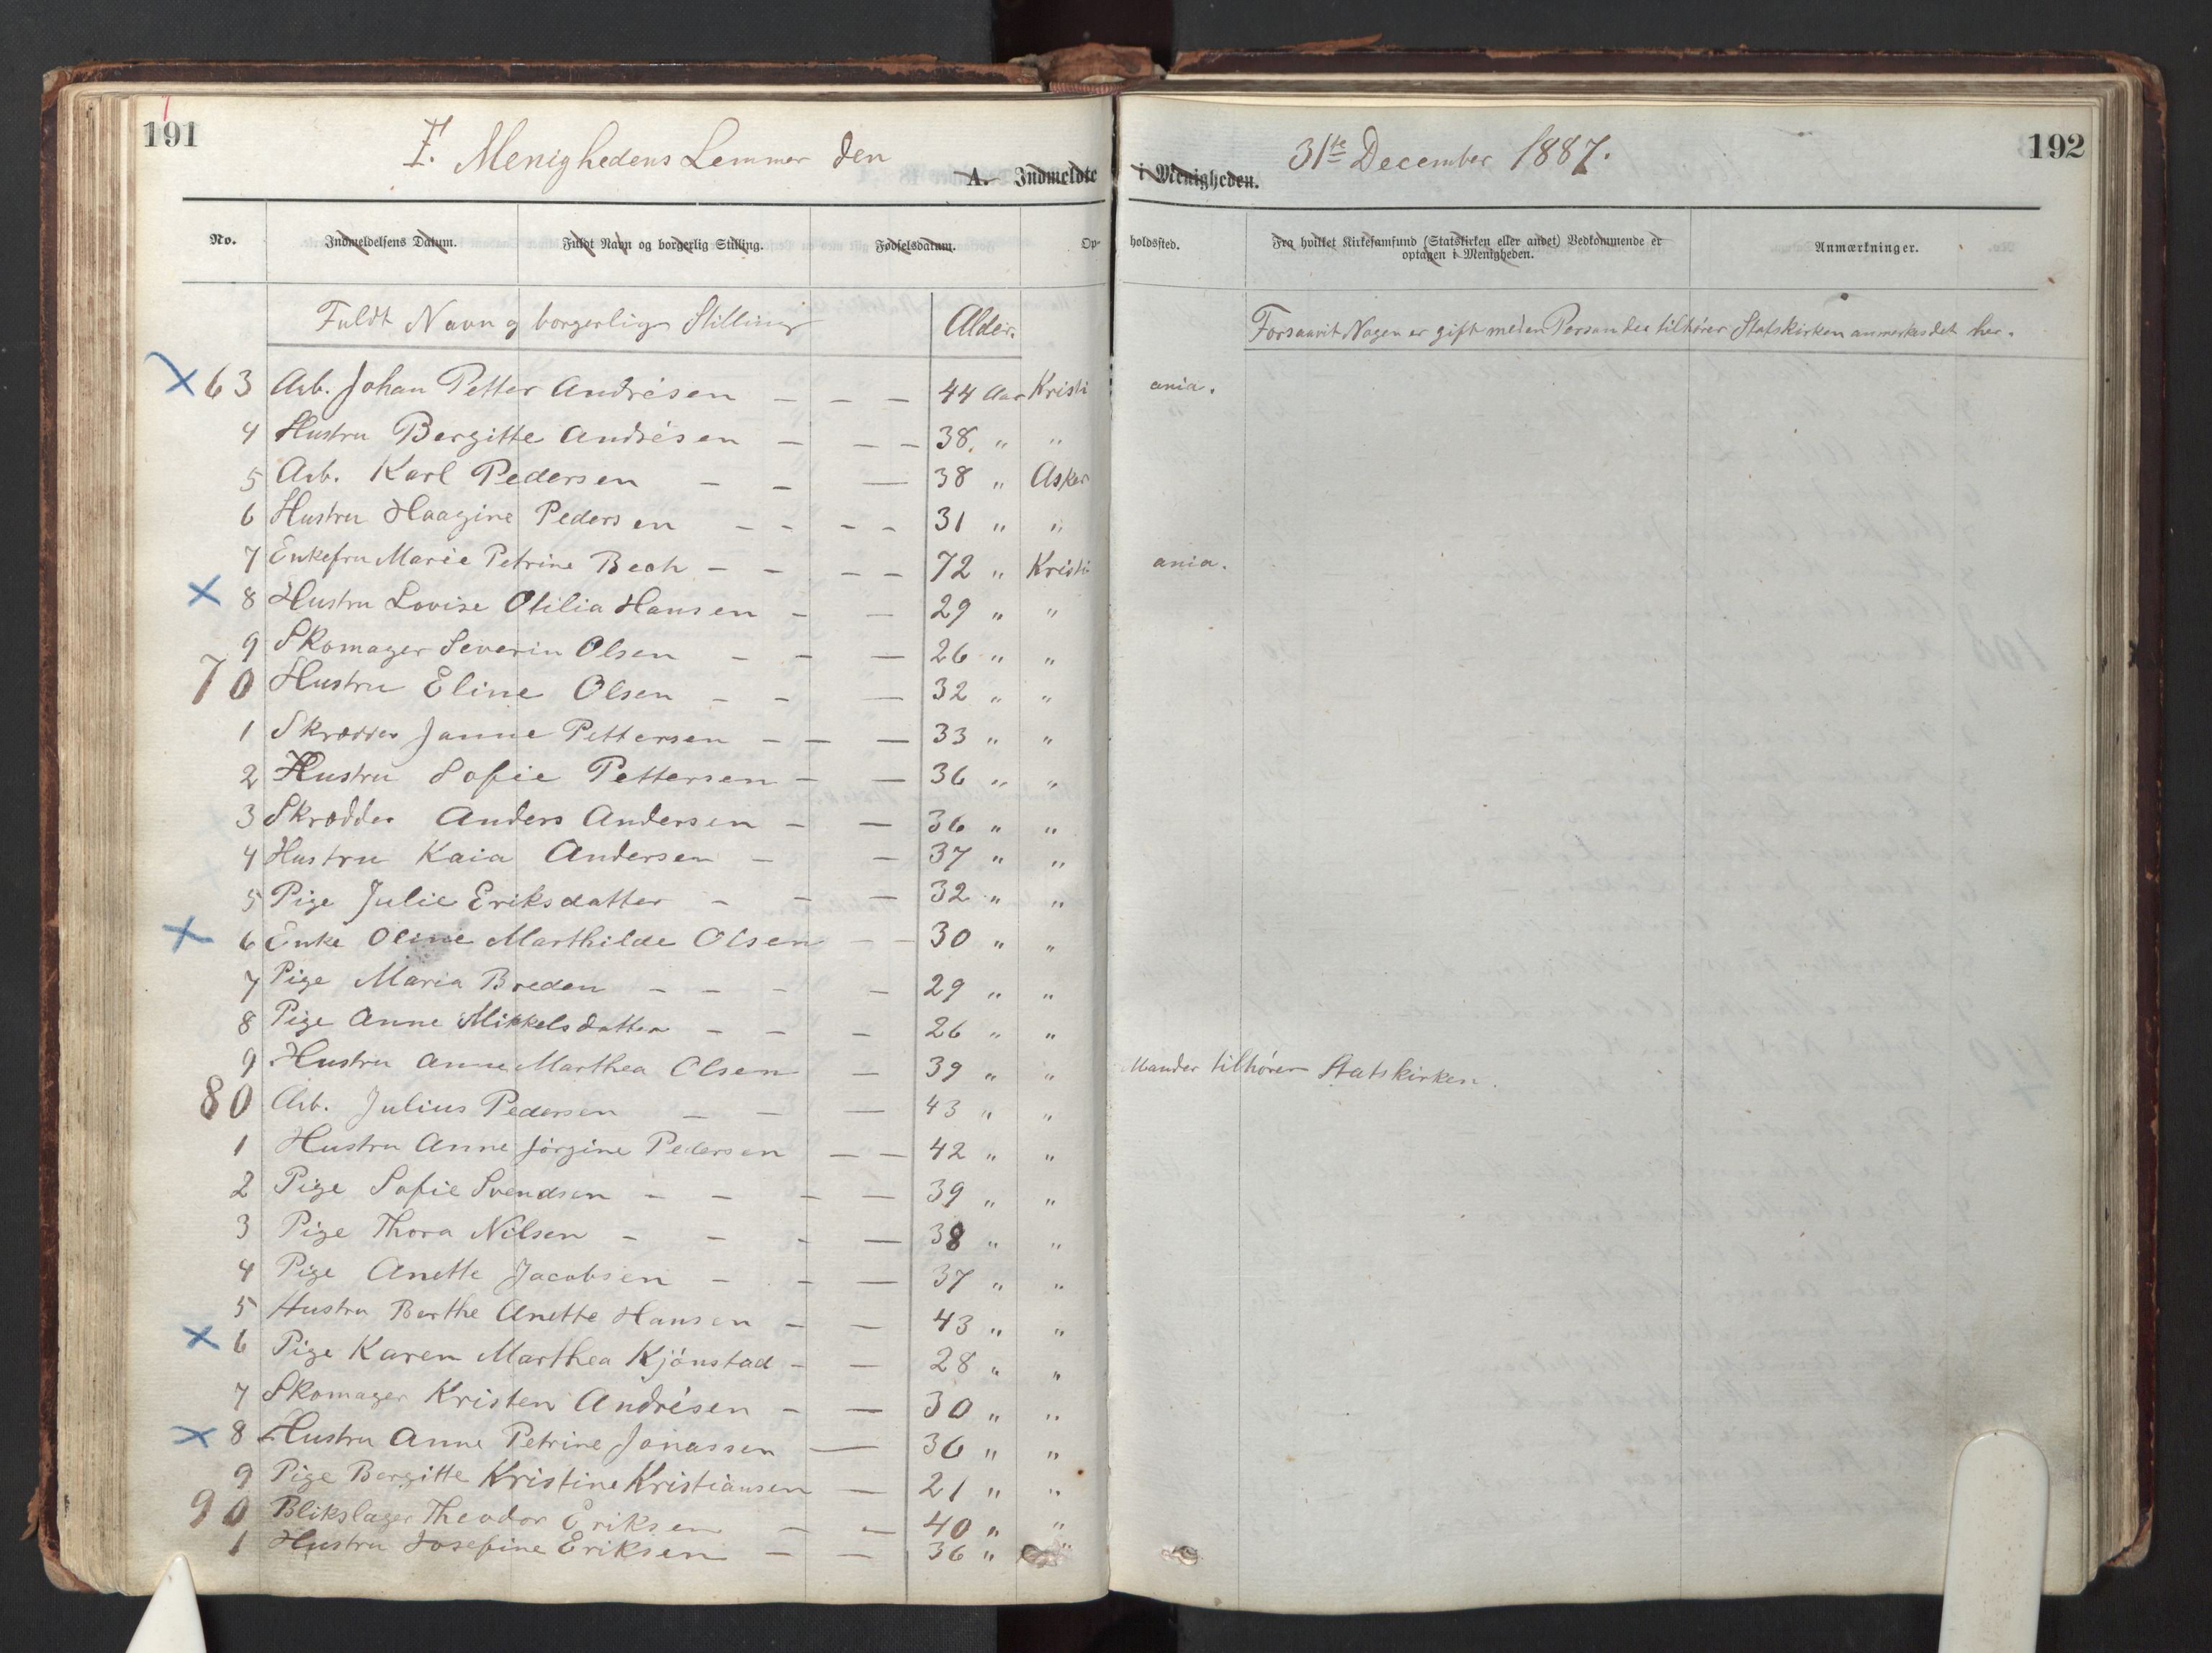 191
F. Menighedens Lemmer den 31te December 1887.
192
A. Indmeldte i Menigheden.
No. Indmeldelsens Datum. Fuldt Navn og borgerlig Stilling. Fødselsdatum. Opholdssted. Fra hvilket Kirkesamfund (Statskirken eller andet) Vedkommende er optagen i Menigheden. Anmærkninger.
Fuldt Navn og borgerlige Stilling Alder. Forsaavit Nogen er gift med en Person der tilhører Statskirken anmerkes det her.
x 63 Arb. Johan Petter Andrésen — — — 44 Aar Kristiania.
4 Hustru Bergitte Andrésen — — — 38 " "
5 Arb. Karl Pedersen — — — 38 " Asker
6 Hustru Haagine Pedersen — — — — 31 " "
7 Enkefru Marie Petrine Bech — — — — 72 " Kristiania.
x 8 Hustru Lovise Otilia Hansen — — 29 " "
9 Skomager Severin Olsen — — — 26 " "
70 Hustru Eline Olsen — — — 32 " "
1 Skrædder Janne Pettersen — — — 33 " "
2 Hustru Sofie Pettersen — — 36 " "
3 Skrædder Anders Andersen — — 36 " "
4 Hustru Kaia Andersen — — 37 " "
5 Pige Julie Eriksdatter — — — 32 " "
x 6 Enke Oline Marthilde Olsen — — 30 " "
7 Pige Maria Breden — — — — 29 " "
8 Pige Anne Mikkelsdatter — — — 26 " "
9 Hustru Anne Marthea Olsen — 39 " " Manden tilhører Statskirken.
80 Arb. Julius Pedersen — — — 43 " "
1 Hustru Anne Jørgine Pedersen — — 42 " "
2 Pige Sofie Svendsen — — — — 39 " "
3 Pige Thora Nilsen — — — — 38 " "
4 Pige Anette Jacobsen — — — 37 " "
5 Hustru Berthe Anette Hansen — — 43 " "
x 6 Pige Karen Marthea Kjønstad — — 28 " "
7 Skomager Kristen Andrésen — — 30 " "
x 8 Hustru Anne Petrine Jonassen — 36 " "
9 Pige Bergitte Kristine Kristiansen — 21 " "
90 Blikslager Theodor Eriksen — — 40 " "
1 Hustru Josefine Eriksen — — 36 " "